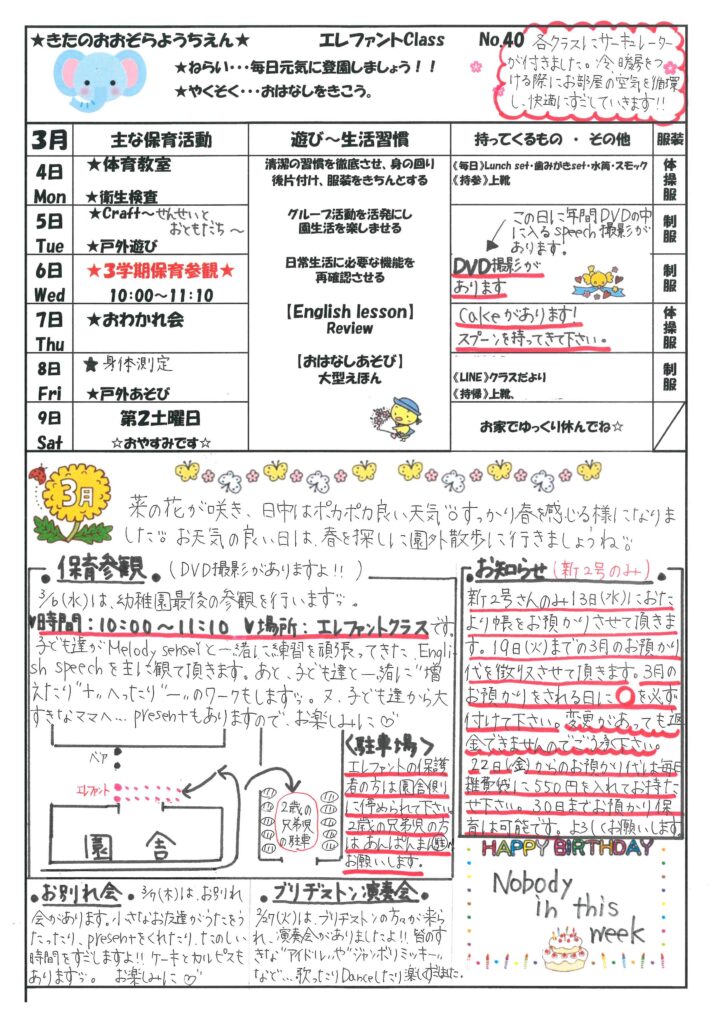 ★きたのおおぞらようちえん★ エレファントClass No.40
★ねらい・・・毎日元気に登園しましょう！！
★やくそく・・・おはなしをきこう。
各クラスにサーキュレーター
が付きました。冷、暖房をつ
ける際にお部屋の空気を循環
し、快適にすごしていきます!!
3月 主な保育活動 遊び～生活習慣 持ってくるもの ・ その他 服装
4日 Mon
★体育教室
★衛生検査
清潔の習慣を徹底させ、身の回り
後片付け、服装をきちんとする
《毎日》Lunch set・歯みがきset・水筒・スモック
《持参》上靴
体操服
5日 Tue
★Craft～せんせいと
おともだち～
★戸外遊び
グループ活動を活発にし
園生活を楽しませる
この日に年間DVDの中
に入るspeech撮影が
あります。
制服
6日 Wed
★3学期保育参観★
10:00～11:10
日常生活に必要な機能を
再確認させる
DVD撮影が
あります
制服
7日 Thu
★おわかれ会
【English lesson】
Review
Cakeがあります!
スプーンを持ってきて下さい。
体操服
8日 Fri
★身体測定
★戸外あそび
【おはなしあそび】
大型えほん
《LINE》クラスだより
《持帰》上靴、
制服
9日 Sat
第2土曜日
☆おやすみです☆
お家でゆっくり休んでね☆
3月
菜の花が咲き、日中はポカポカ良い天気。すっかり春を感じる様になりま
した。お天気の良い日は、春を探しに園外散歩に行きましょうね。
保育参観 (DVD撮影がありますよ!!)
3/6(水)は、幼稚園最後の参観を行います。
♥時間：10:00～11:10 ♥場所：エレファントクラスです。
子ども達がMelody senseiと一緒に練習を頑張ってきた、Engli
sh speechを主に観て頂きます。あと、子ども達と一緒に"増
えたり"+"へったり"-"のワークもします。又、子ども達から大
すきなママへ…presentもありますので、お楽しみに♡
ベア
エレファント
園舎
2歳の
兄弟児
の駐車
<駐車場>
エレファントの保護
者の方は園舎側り
に停められて下さい。
2歳の兄弟児の方
は、あんぱんまん
お願いします。
お知らせ (新2号のみ)
新2号さんのみ13日(水)におた
より帳をお預かりさせて頂きま
す。19日(火)までの3月のお預かり
代を徴収させて頂きます。3月の
お預かりをされる日に○を必ず
付けて下さい。変更があっても返
金できませんのでご了承下さい。
22日(金)からのお預かり代は毎日
雑費袋に550円を入れてお持た
せ下さい。30日までお預かり保
育は可能です。よろしくお願いします
お別れ会 3/7(木)は、お別れ
会があります。小さなお友達がうたをう
たったり、presentをくれたり、たのしい
時間をすごしますよ!!ケーキとカルピスも
あります。 お楽しみに♡
ブリヂストン演奏会
2/27(火)は、ブリヂストンの方々が来ら
れ、演奏会がありましたよ!!皆のす
きな"アイドル"や"ジャンボリミッキー"
など…歌ったりDanceしたり楽しくすごしました。
HAPPY BIRTHDAY
Nobody
in this
week